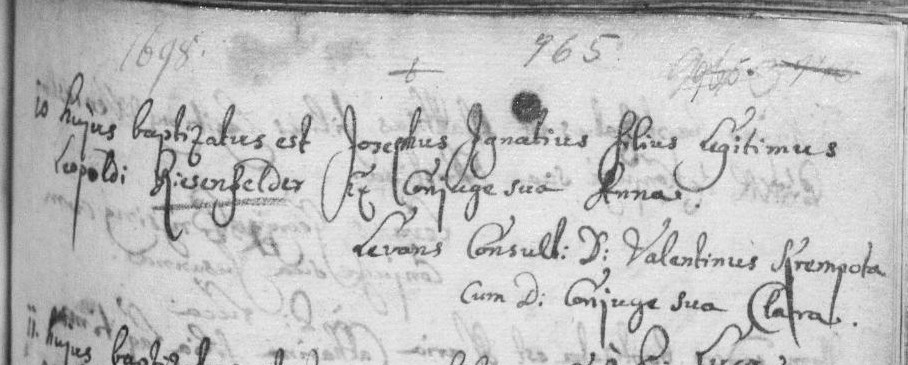 1698. 965
10 hujus baptizatus est Josephus Ignatius filius Legitimus
Leopoldi Riesenfelder Ex Conjuge sua Anna.
Levans Consult: D: Valentinus Krempota
Cum D: Conjuge sua Clara.
11. hujus